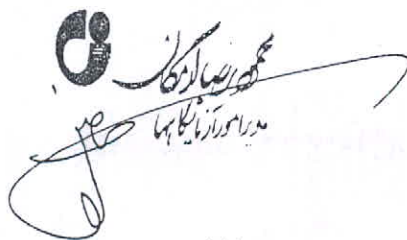 محمود رضا
مدیر امور آزمایشگاهها